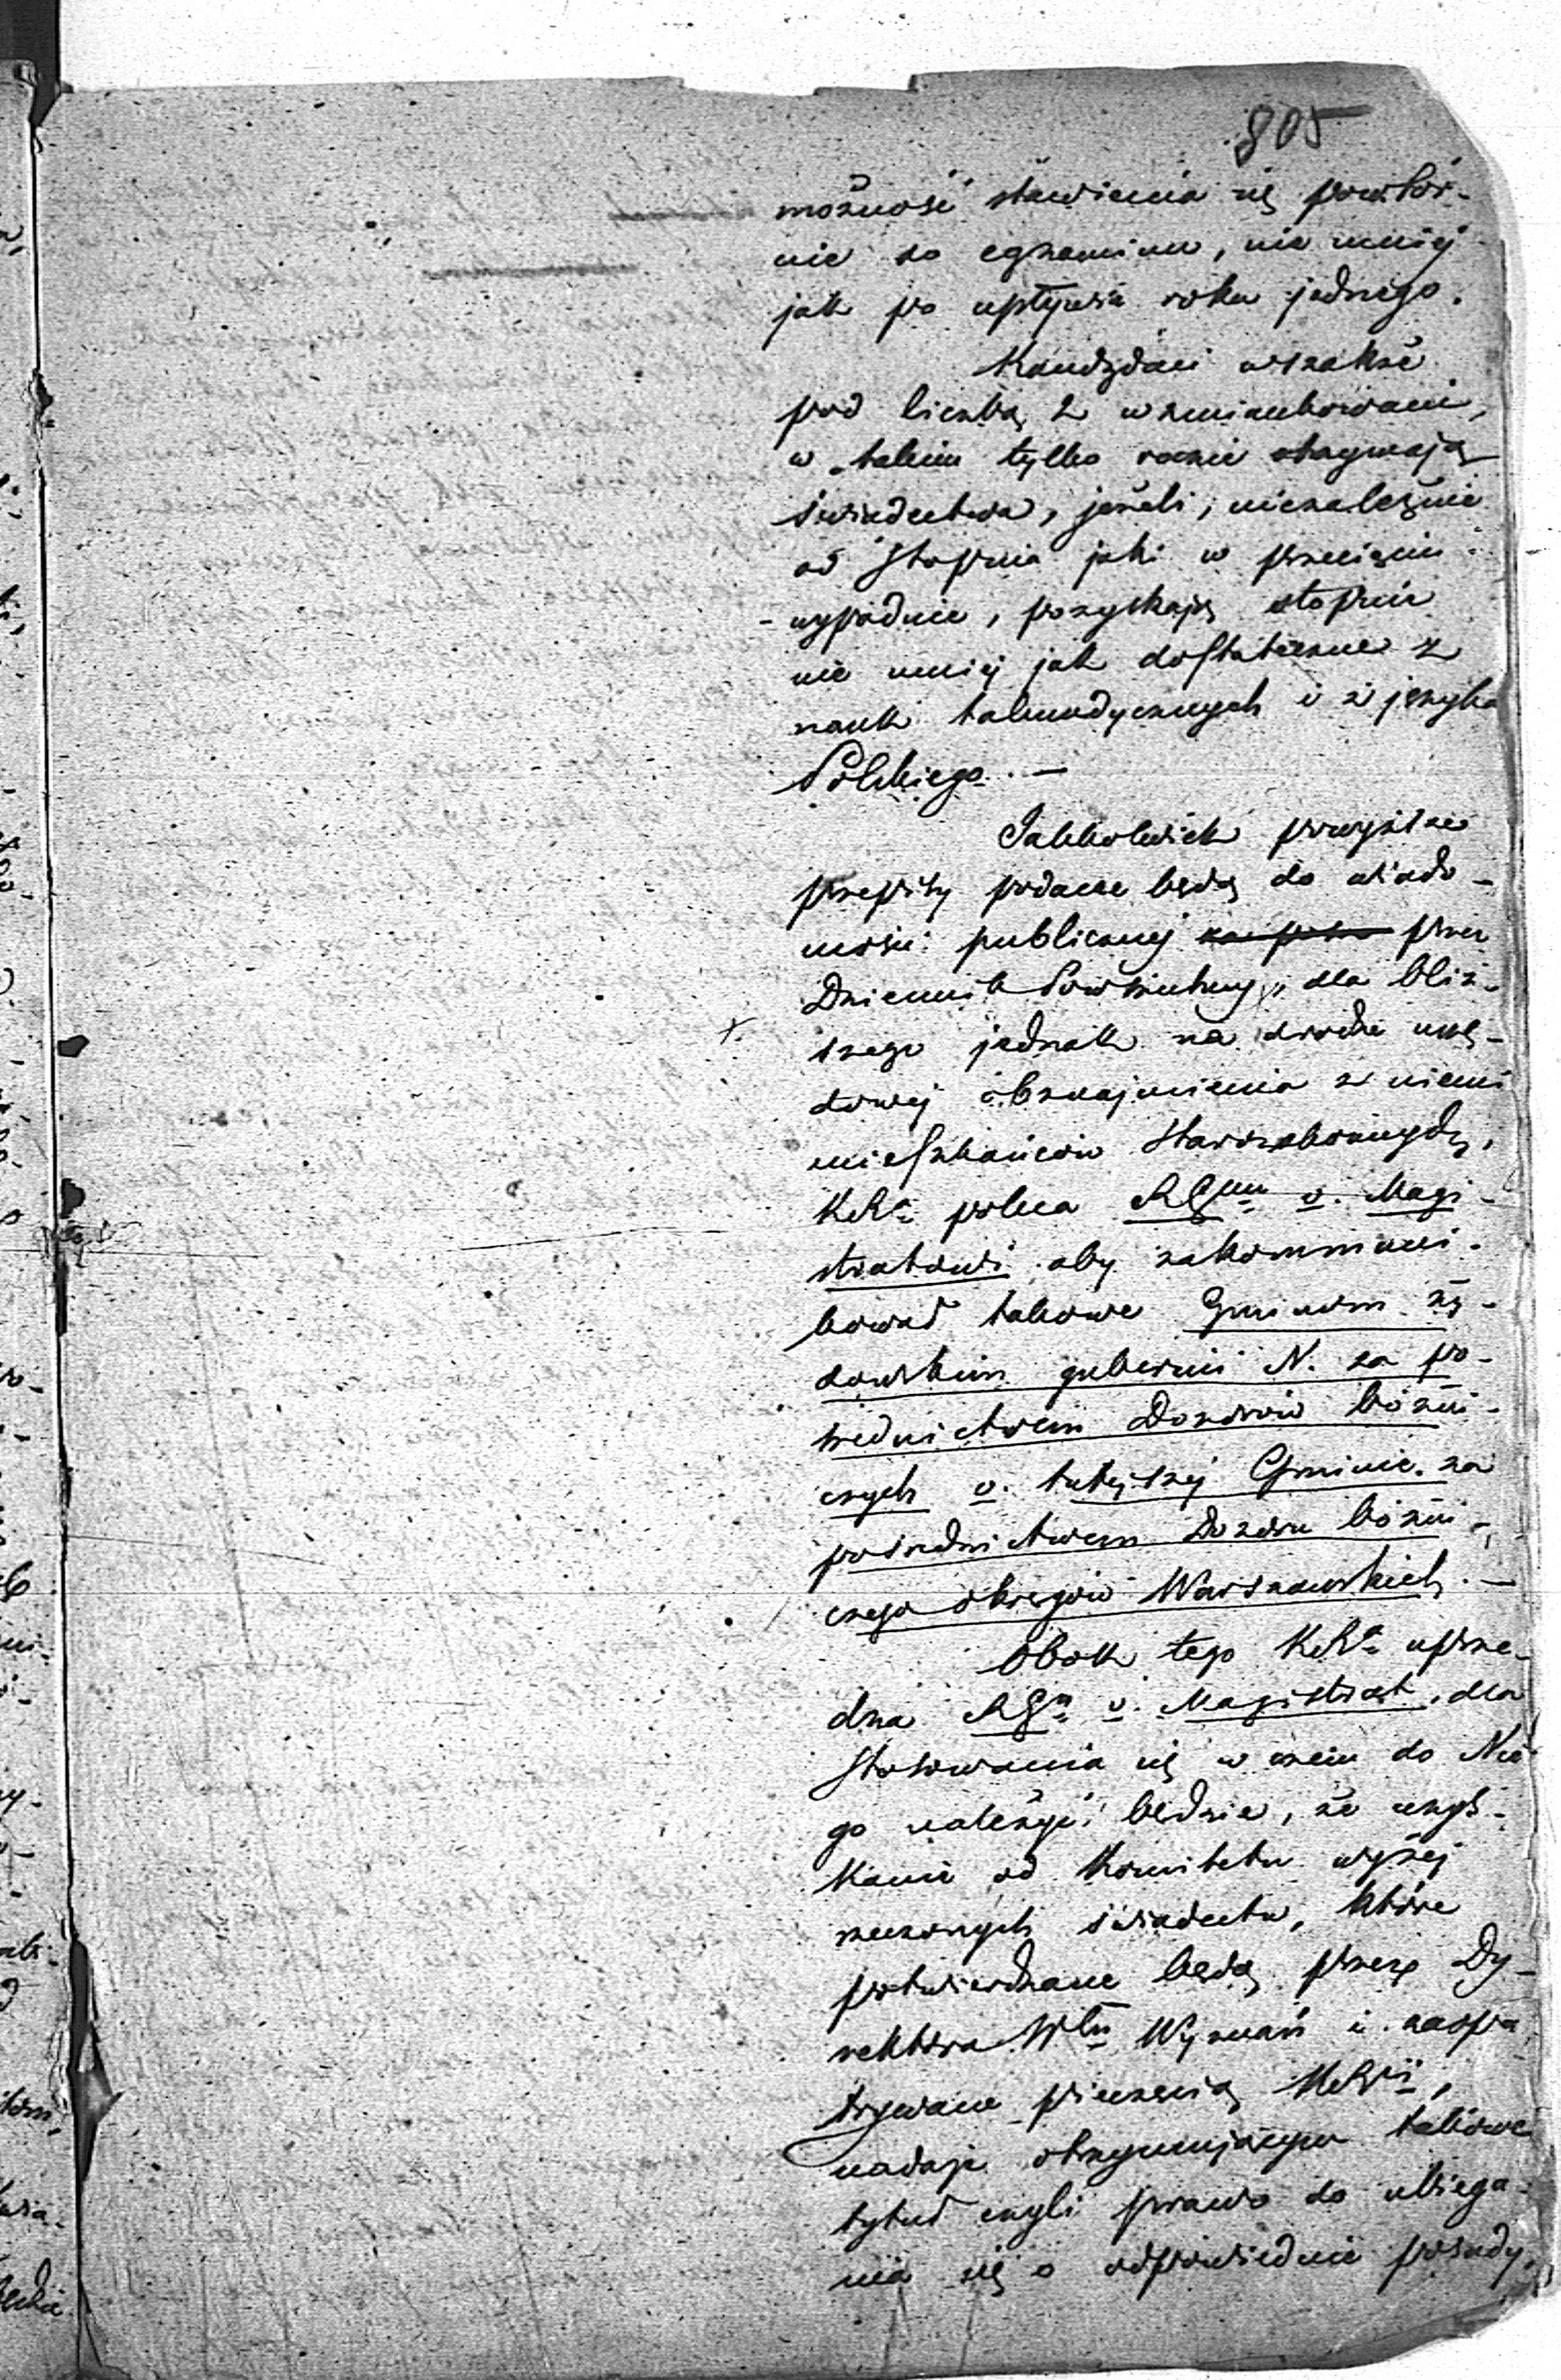 805
możność stawienia się powtór-
nie do egzaminu, nie mniej
jak po upływie roku jednego.
Kandydaci wszakże
pod liczbą 2 wzmiankowani,
w takim tylko razie otrzymają
świadectwa, jeżeli, niezależnie
od stopnia jaki w przecięciu
wypadnie, pozyskają stopnie
nie mniej jak dostateczne z
nauk talmudycznych i z języka
Polskiego. —
Jakkolwiek powyższe
przepisy podane będą do wiado-
mości publicznej przez
Dziennik Powszechny, dla bliż-
szego jednak na drodze urzę-
dowej obznajmienia z niemi
mieszkańców Starozakonnych,
KRa poleca RGmu v. Magi-
stratowi aby zakommuni-
kował takowe Gminom ży-
dowskim gubernii N. za po-
średnictwem Dozorów bóżni-
czych v. tutejszej Gminie za
pośrednictwem Dozoru bóżni-
czego okręgów Warszawskich. —
Obok tego KRa uprze-
dza RGn v. Magistrat, dla
stosowania się w czem do Nie
go należyć będzie, że uzys-
kanie od Komitetu wyżej
rzeczonych świadectw, które
potwierdzane będą przez Dy-
rektora Włu Wyznań i zaopa
trywane pieczęcią KRyii,
nadaje otrzymującym takowe
tytuł czyli prawo do ubiega-
nia się o odpowiednie posady,